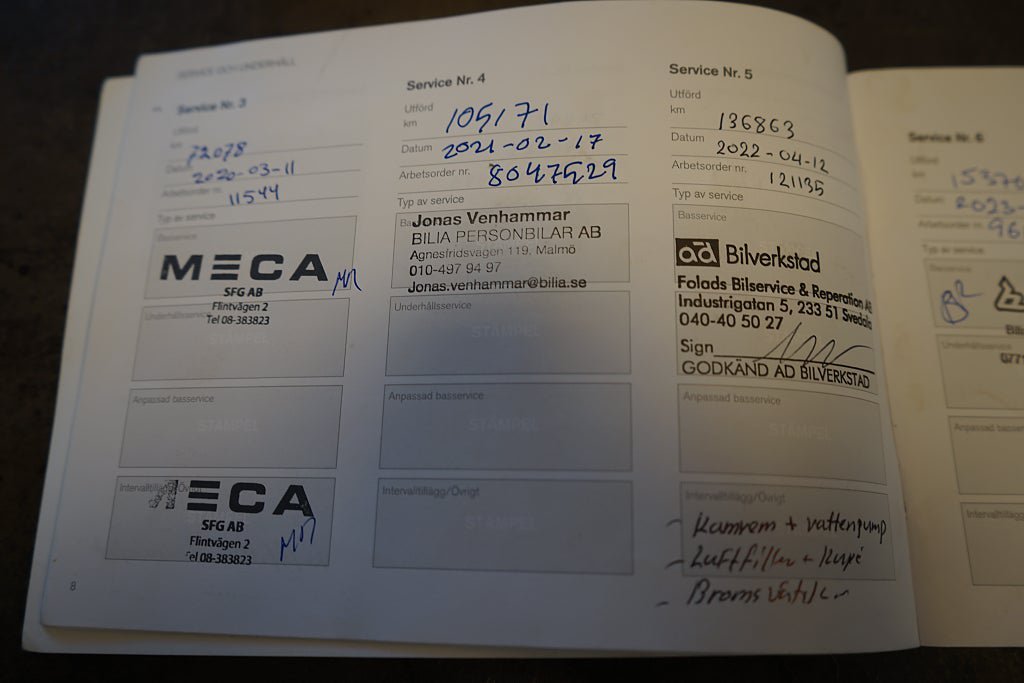 SERVICE OCH UNDERHÅLL
Service Nr. 3
Utförd
km
72078
Datum
2020-03-11
Arbetsorder nr.
11544
Typ av service
Basservice
MECA
SFG AB
Flintvägen 2
Tel 08-383823
Underhållsservice
STÄMPEL
Anpassad basservice
STÄMPEL
Intervalltillägg/Övrigt
MECA
SFG AB
Flintvägen 2
Tel 08-383823
8
Service Nr. 4
Utförd
km
105171
Datum 2021-02-17
Arbetsorder nr. 8047529
Typ av service
Jonas Venhammar
BILIA PERSONBILAR AB
Agnesfridsvägen 119, Malmö
010-497 94 97
Jonas.venhammar@bilia.se
Underhållsservice
STÄMPEL
Anpassad basservice
STÄMPEL
Intervalltillägg/Övrigt
STÄMPEL
Service Nr. 5
Utförd
km
136863
Datum
2022-04-12
Arbetsorder nr.
121135
Typ av service
Basservice
ad Bilverkstad
Folads Bilservice & Reperation AB
Industrigatan 5, 233 51 Svedala
040-40 50 27
Sign
GODKÄND AD BILVERKSTAD
Anpassad basservice
STÄMPEL
Intervalltillägg/Övrigt
- Kamrem + vattenpump
- Luftfilter + Kupé
- Bromsvätska
Service Nr. 6
Utförd
km
Datum 2023-
Arbetsorder nr.
96
Typ av
Basservice
Underhållsservice
077
Anpassad basser
Intervalltill